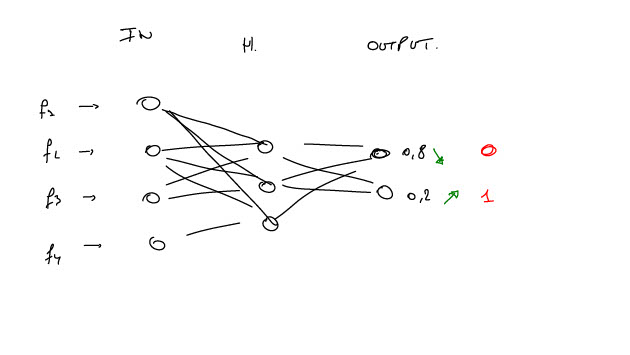 IN
H.
OUTPUT.
f1 →
f2 →
f3 →
f4 →
0,8 ↘ 0
0,2 ↗ 1